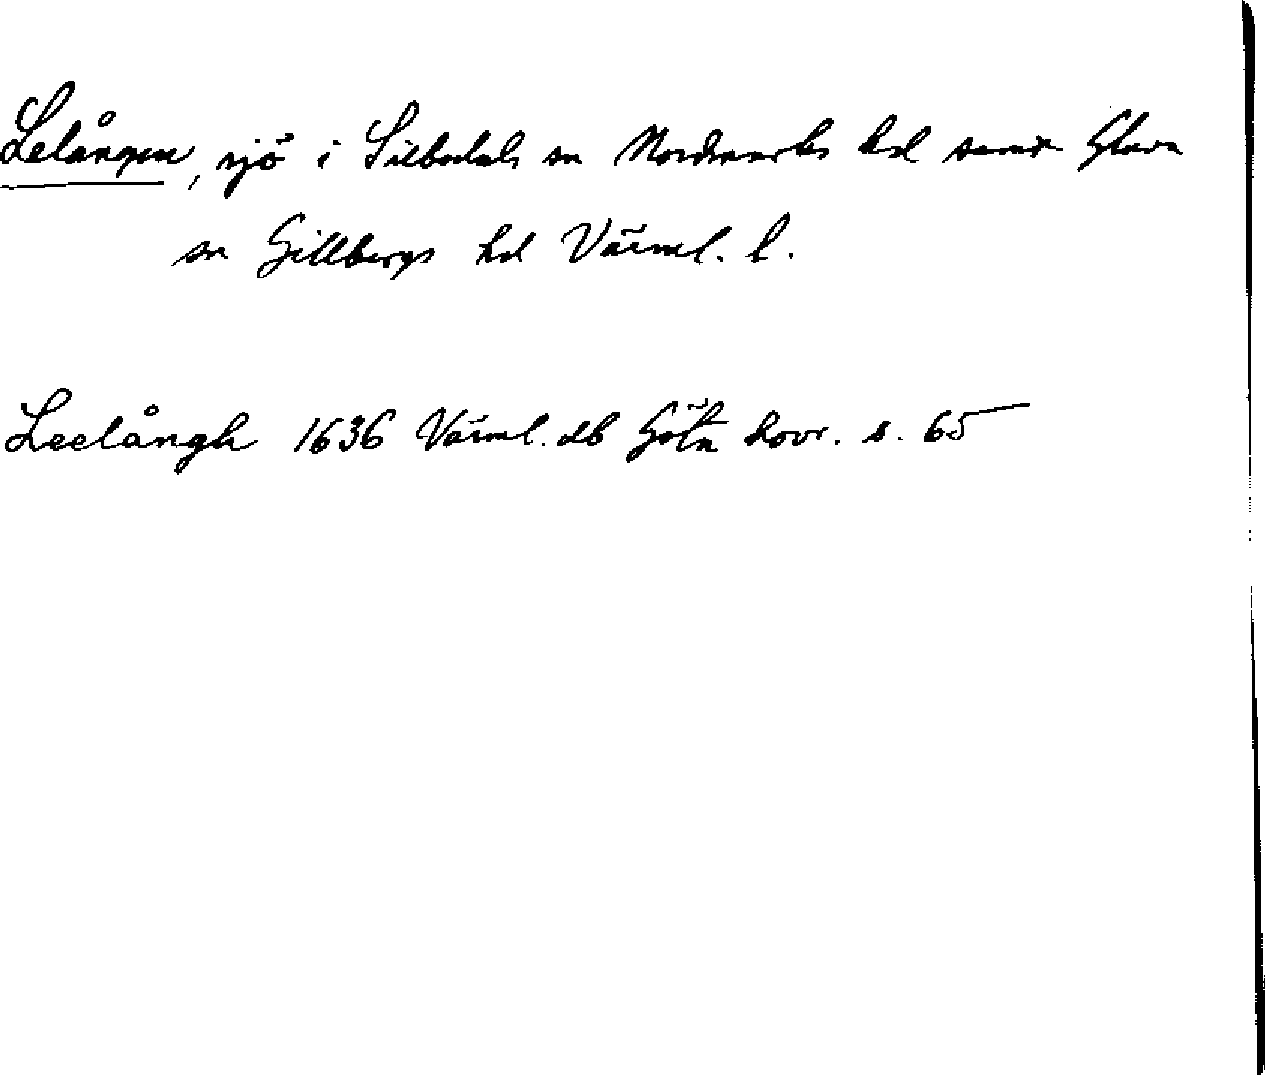 Lelången, sjö i Silbodals sn Nordmarks hd samt Glava
sn Gillbergs hd Värml. l.
Leelångh 1636 Värml. db Göta hovr. s. 65